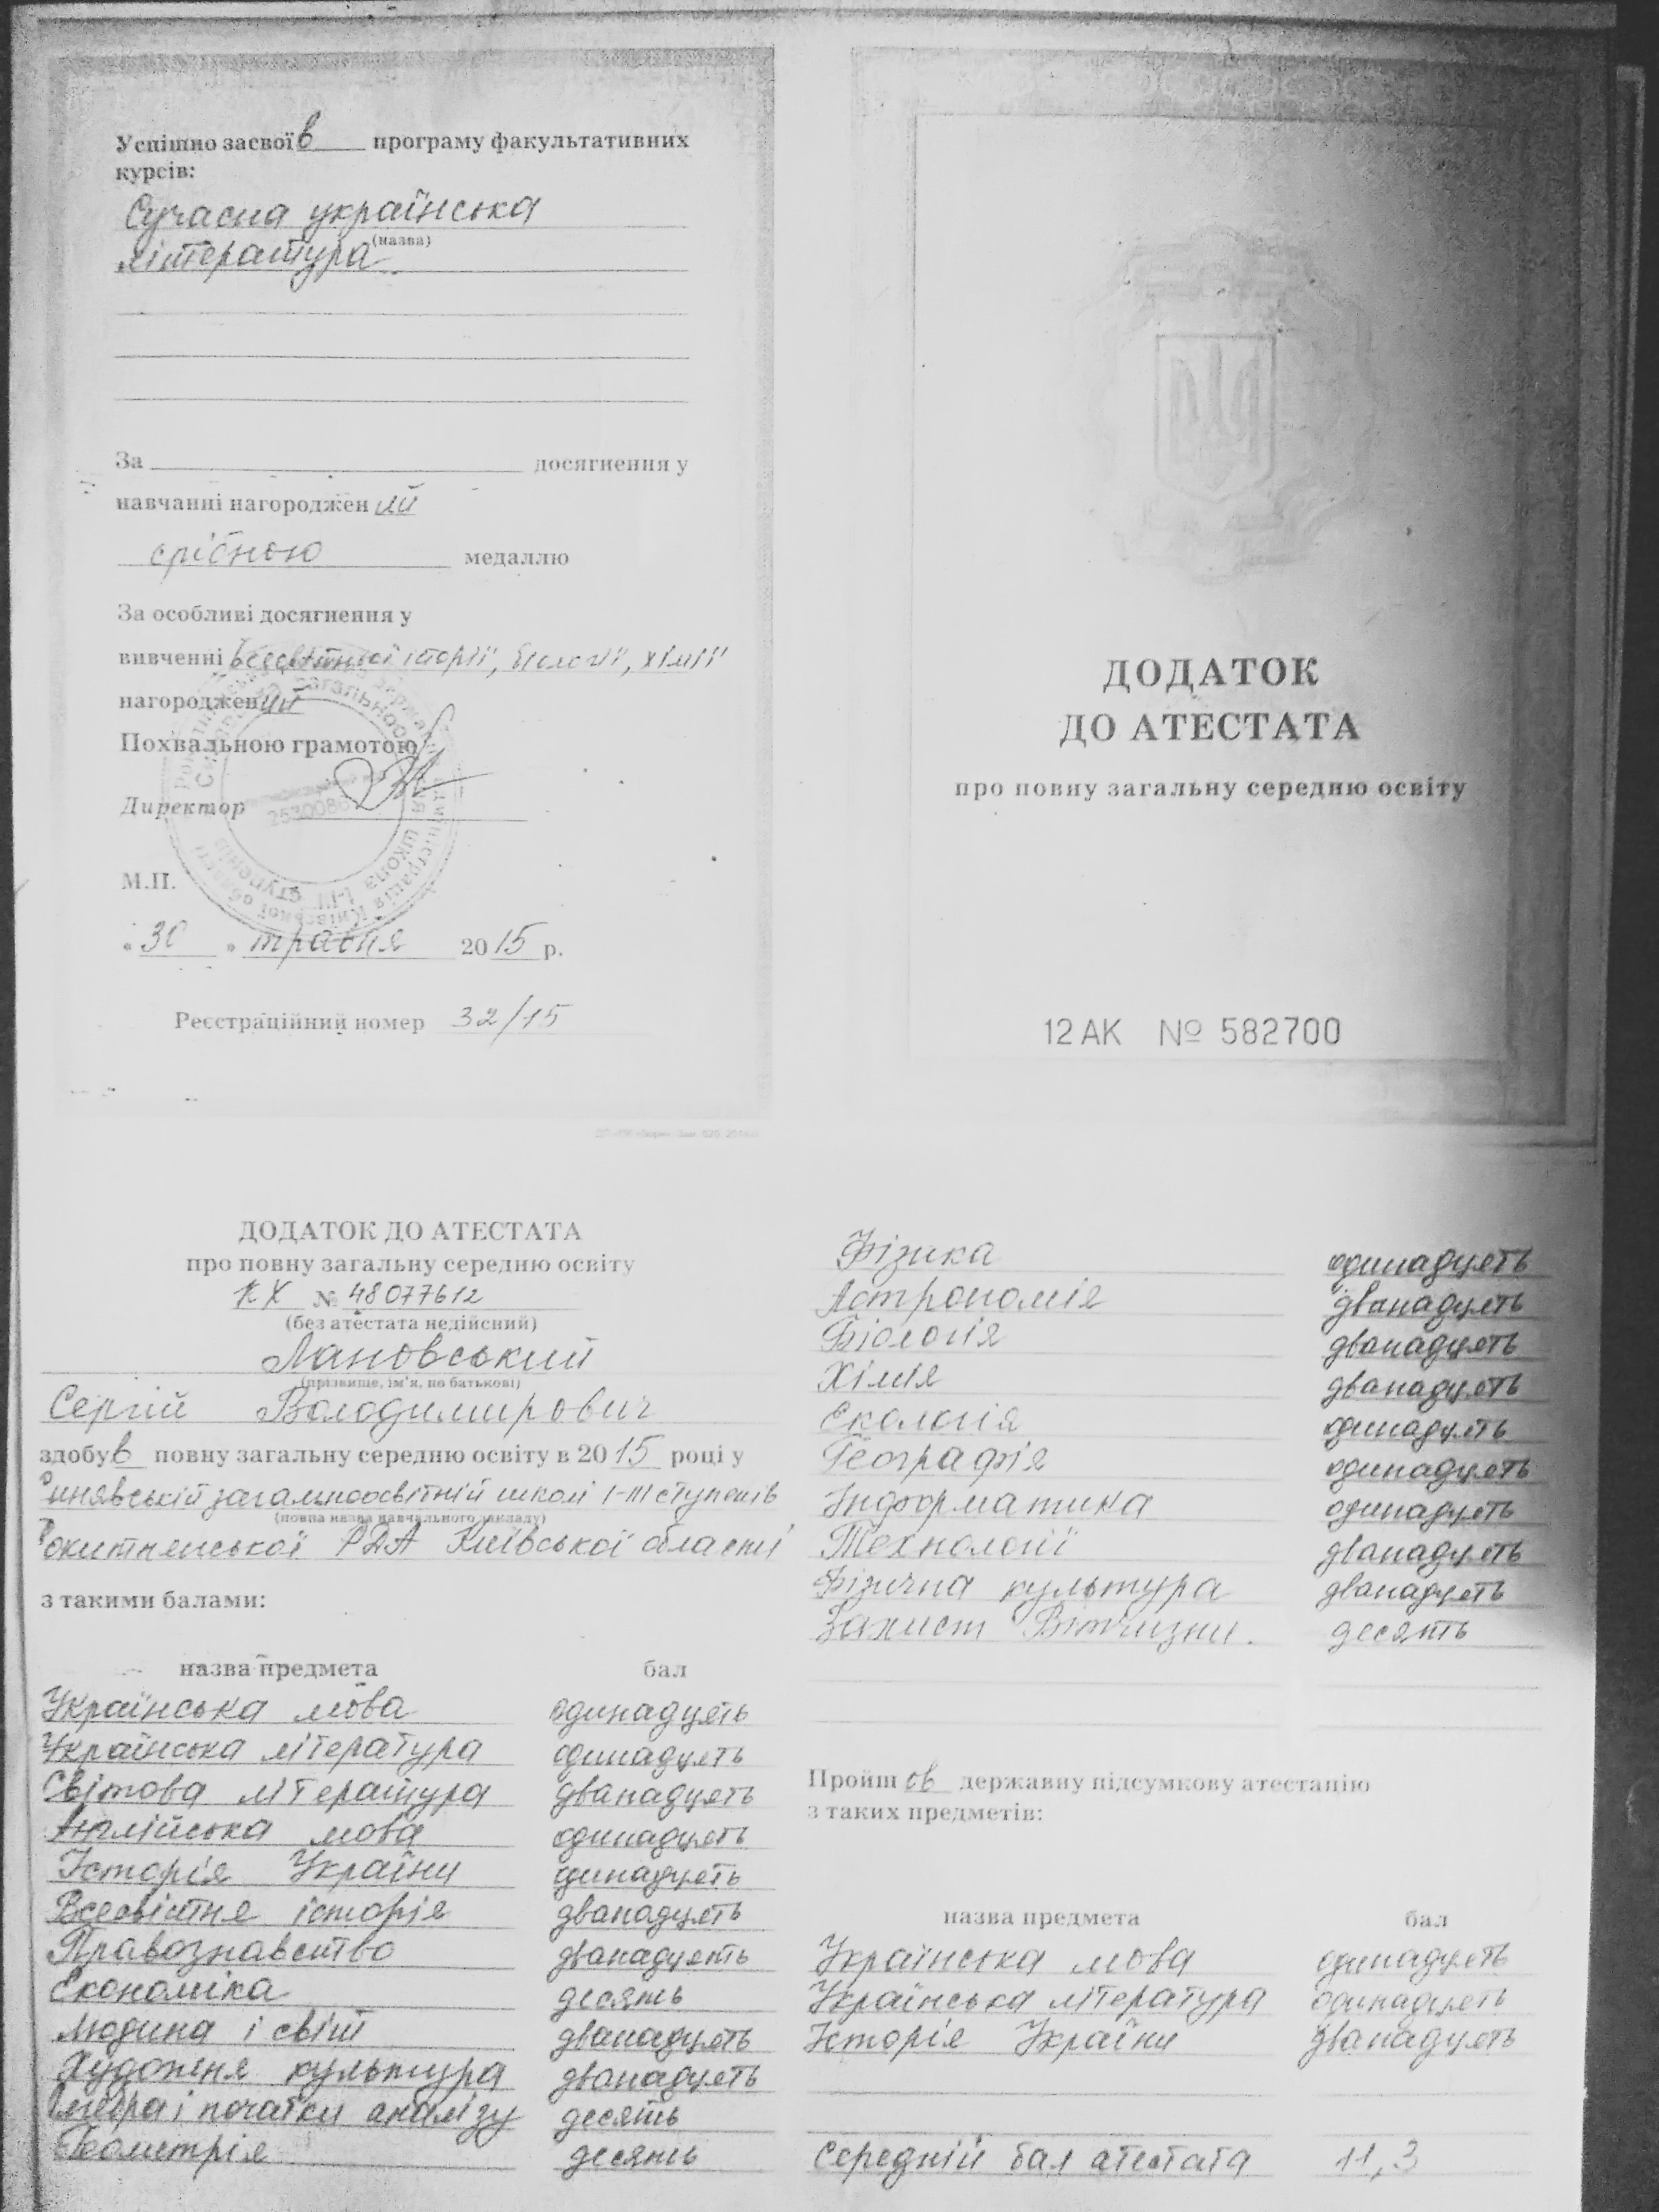 Успішно засвоїв програму факультативних
курсів:
Сучасна українська
(назва)
література
За досягнення у
навчанні нагороджен ий
срібною медаллю
За особливі досягнення у
вивченні всесвітньої історії, біології, хімії
нагороджений
Похвальною грамотою
Директор
М.П.
"30" травня 2015 р.
Реєстраційний номер 32/15
ДОДАТОК
ДО АТЕСТАТА
про повну загальну середню освіту
12 АК № 582700
ДОДАТОК ДО АТЕСТАТА
про повну загальну середню освіту
КХ № 48077612
(без атестата недійсний)
Лановський
(прізвище, ім'я, по батькові)
Сергій Володимирович
здобув повну загальну середню освіту в 2015 році у
Синявській загальноосвітній школі І-ІІІ ступенів
(повна назва навчального закладу)
Рокитнянської РДА Київської області
з такими балами:
назва предмета бал
Українська мова одинадцять
Українська література одинадцять
Світова література дванадцять
Англійська мова одинадцять
Історія України одинадцять
Всесвітня історія дванадцять
Правознавство дванадцять
Економіка десять
Людина і світ дванадцять
Художня культура дванадцять
Алгебра і початки аналізу десять
Геометрія десять
Фізика одинадцять
Астрономія дванадцять
Біологія дванадцять
Хімія дванадцять
Екологія одинадцять
Географія одинадцять
Інформатика одинадцять
Технології дванадцять
Фізична культура дванадцять
Захист Вітчизни. десять
Пройшов державну підсумкову атестацію
з таких предметів:
назва предмета бал
Українська мова одинадцять
Українська література одинадцять
Історія України дванадцять
Середній бал атестата 11,3